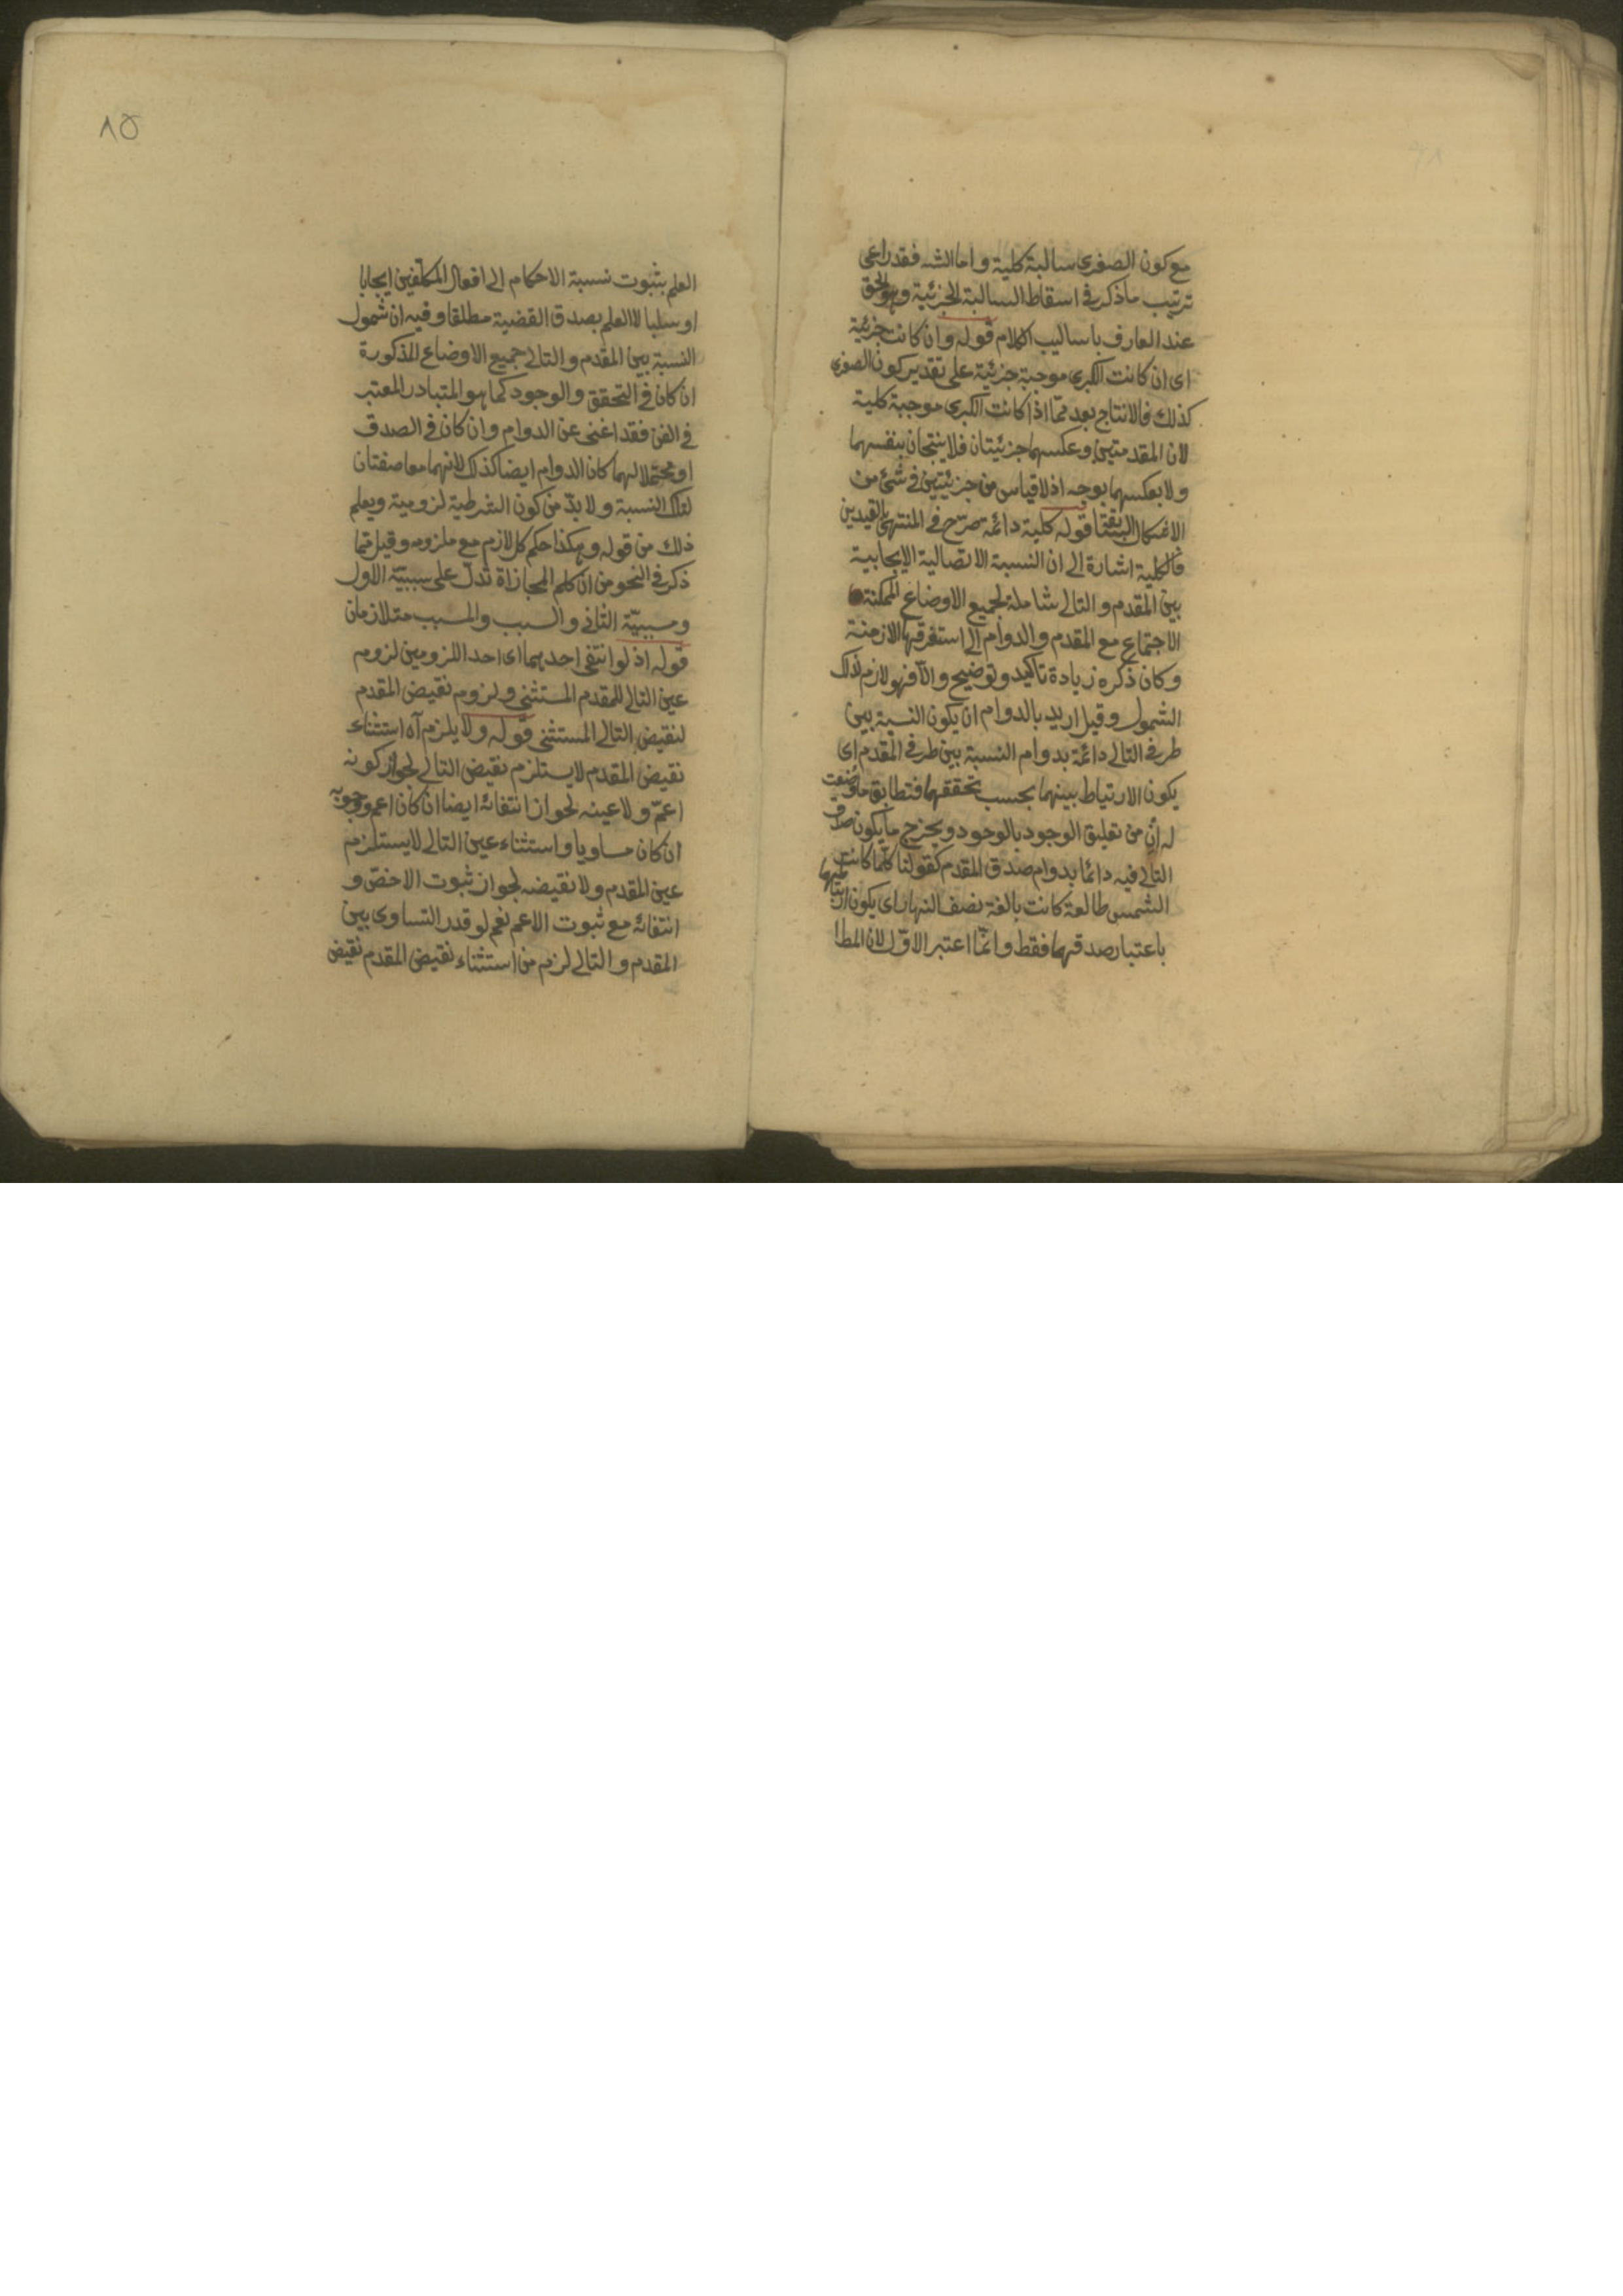 مع كون الصغرى سالبة كلية واما الشه فقد راعى
ترتيب ما ذكر فى اسقاط السالبة الجزئية وهو الحق
عند العارف باساليب الكلام قوله وان كانت جزئية
اى ان كانت الكبرى موجبة جزئية على تقدير كون الصغرى
كذلك فالانتاج بعد مما اذا كانت الكبرى موجبة كلية
لان المقدمتين وعكسهما جزئيتان فلا ينتجان بنفسهما
ولا بعكسهما بوجه اذ لا قياس من جزئيتين فى شئ من
الاشكال قوله كلية دائمة صرح فى المنتهى بالقيدين
فالكلية اشارة الى ان النسبة الاتصالية الايجابية
بين المقدم والتالى شاملة لجميع الاوضاع الممكنة
الاجتماع مع المقدم والدوام الى استغرقها الازمنة
وكان ذكره زيادة تاكيد وتوضيح والا فهو لازم لذلك
الشمول وقيل اريد بالدوام ان يكون النسبة بين
طرفى التالى دائمة بدوام النسبة بين طرفى المقدم اى
يكون الارتباط بينهما بحسب تحققهما فتطابق ما وضعت
له ان من تعليق الوجود بالوجود ويخرج ما يكون صدق
التالى فيه دائما بدوام صدق المقدم كقولنا كلما كانت
الشمس طالعة كانت بالغة نصف النهار اى يكون
باعتبار صدقهما فقط وانما اعتبر الاول لان المط
٨٥
العلم بثبوت نسبة الاحكام الى افعال المكلفين ايجابا
او سلبا لا العلم بصدق القضية مطلقا وفيه ان شمول
النسبة بين المقدم والتالى جميع الاوضاع المذكورة
ان كان فى التحقق والوجود كما هو المتبادر المعتبر
فى الفن فقد اغنى عن الدوام وان كان فى الصدق
او محتملا لهما كان الدوام ايضا كذلك لانهما معا صفتان
لتلك النسبة ولا بد من كون الشرطية لزومية ويعلم
ذلك من قوله وهكذا حكم كل لازم مع ملزومه وقيل مما
ذكر فى النحو من ان كلم المجازاة تدل على سببية الاول
ومسببية الثانى والسبب والمسبب متلازمان
قوله اذ لو انتفى احدهما اى احد اللزومين لزوم
عين التالى للمقدم المستثنى ولزوم نقيض المقدم
لنقيض التالى المستثنى قوله ولا يلزم آه استثناء
نقيض المقدم لا يستلزم نقيض التالى لجواز كونه
اعم ولا عينه لجواز انتفائه ايضا ان كان اعم ووجوبه
ان كان مساويا واستثناء عين التالى لا يستلزم
عين المقدم ولا نقيضه لجواز ثبوت الاخص و
انتفائه مع ثبوت الاعم نعم لو قدر التساوى بين
المقدم والتالى لزم من استثناء نقيض المقدم نقيض